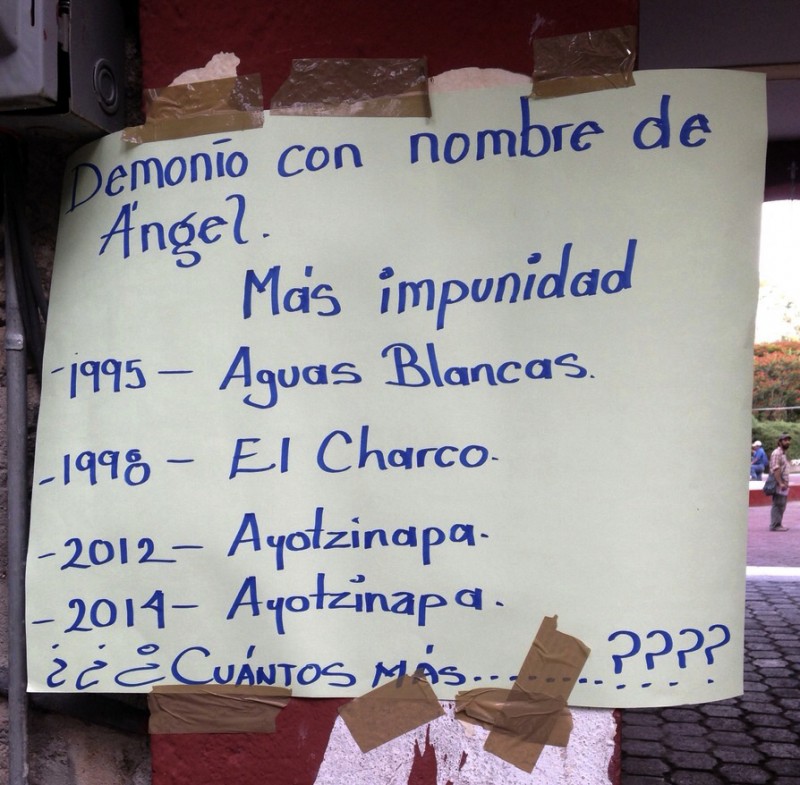 Demonio con nombre de
Ángel.
Más impunidad
-1995 - Aguas Blancas.
-1998 - El Charco.
-2012 - Ayotzinapa.
-2014 - Ayotzinapa.
¿¿¿Cuántos más............????